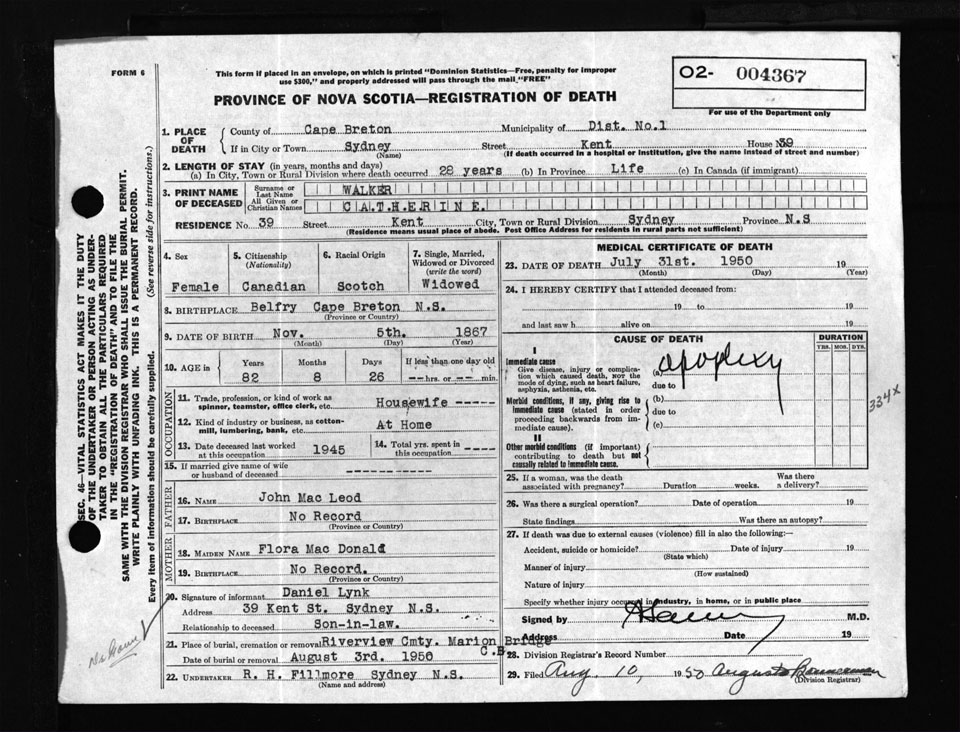 FORM 6
This form if placed in an envelope, on which is printed "Dominion Statistics—Free, penalty for improper
use $300," and properly addressed will pass through the mail "FREE"
O2- 004367
For use of the Department only
PROVINCE OF NOVA SCOTIA—REGISTRATION OF DEATH
1. PLACE OF DEATH
County of Cape Breton Municipality of Dist. No.1
If in City or Town Sydney Street Kent House 39
(Name) (If death occurred in a hospital or institution, give the name instead of street and number)
2. LENGTH OF STAY (in years, months and days)
(a) In City, Town or Rural Division where death occurred 28 years (b) In Province Life (c) In Canada (if immigrant)
3. PRINT NAME OF DECEASED
Surname or Last Name WALKER
All Given or Christian Names CATHERINE.
RESIDENCE No. 39 Street Kent City, Town or Rural Division Sydney Province N.S
(Residence means usual place of abode. Post Office Address for residents in rural parts not sufficient)
4. Sex
Female
5. Citizenship
(Nationality)
Canadian
6. Racial Origin
Scotch
7. Single, Married,
Widowed or Divorced
(write the word)
Widowed
8. BIRTHPLACE Belfry Cape Breton N.S.
(Province or Country)
9. DATE OF BIRTH Nov. 5th. 1867
(Month) (Day) (Year)
10. AGE in
Years Months Days If less than one day old
82 8 26 hrs. or min.
OCCUPATION
11. Trade, profession, or kind of work as
spinner, teamster, office clerk, etc. Housewife
12. Kind of industry or business, as cotton-
mill, lumbering, bank, etc. At Home
13. Date deceased last worked
at this occupation 1945
14. Total yrs. spent in
this occupation
15. If married give name of wife
or husband of deceased
FATHER
16. NAME John Mac Leod
17. BIRTHPLACE No Record
(Province or Country)
MOTHER
18. MAIDEN NAME Flora Mac Donald
19. BIRTHPLACE No Record.
(Province or Country)
20. Signature of informant Daniel Lynk
Address 39 Kent St. Sydney N.S.
Relationship to deceased Son-in-law.
21. Place of burial, cremation or removal Riverview Cmty. Marion Bridge
C.B.
Date of burial or removal August 3rd. 1950
22. UNDERTAKER R. H. Fillmore Sydney N.S.
(Name and address)
MEDICAL CERTIFICATE OF DEATH
23. DATE OF DEATH July 31st. 1950 19
(Month) (Day) (Year)
24. I HEREBY CERTIFY that I attended deceased from:
19 to 19
and last saw h alive on 19
CAUSE OF DEATH
DURATION
YRS. MOS. DYS.
I
Immediate cause
Give disease, injury or complica-
tion which caused death, NOT the
mode of dying, such as heart failure,
asphyxia, asthenia, etc.
(a) apoplexy
due to
Morbid conditions, if any, giving rise to
immediate cause (stated in order
proceeding backwards from im-
mediate cause).
(b)
due to
(c)
334X
II
Other morbid conditions (if important)
contributing to death but not
causally related to immediate cause.
25. If a woman, was the death
associated with pregnancy? Duration weeks. Was there
a delivery?
26. Was there a surgical operation? Date of operation 19
State findings Was there an autopsy?
27. If death was due to external causes (violence) fill in also the following:—
Accident, suicide or homicide? Date of injury 19
(State which)
Manner of injury
(How sustained)
Nature of injury
Specify whether injury occurred in industry, in home, or in public place
Signed by M.D.
Address Date 19
28. Division Registrar's Record Number
29. Filed Aug. 10, 1950
(Division Registrar)
SEC. 46—VITAL STATISTICS ACT MAKES IT THE DUTY
OF THE UNDERTAKER OR PERSON ACTING AS UNDER-
TAKER TO OBTAIN ALL THE PARTICULARS REQUIRED
IN THE "REGISTRATION OF DEATH" AND TO FILE THE
SAME WITH THE DIVISION REGISTRAR WHO SHALL ISSUE THE BURIAL PERMIT.
WRITE PLAINLY WITH UNFADING INK. THIS IS A PERMANENT RECORD.
Every item of information should be carefully supplied. (See reverse side for instructions.)